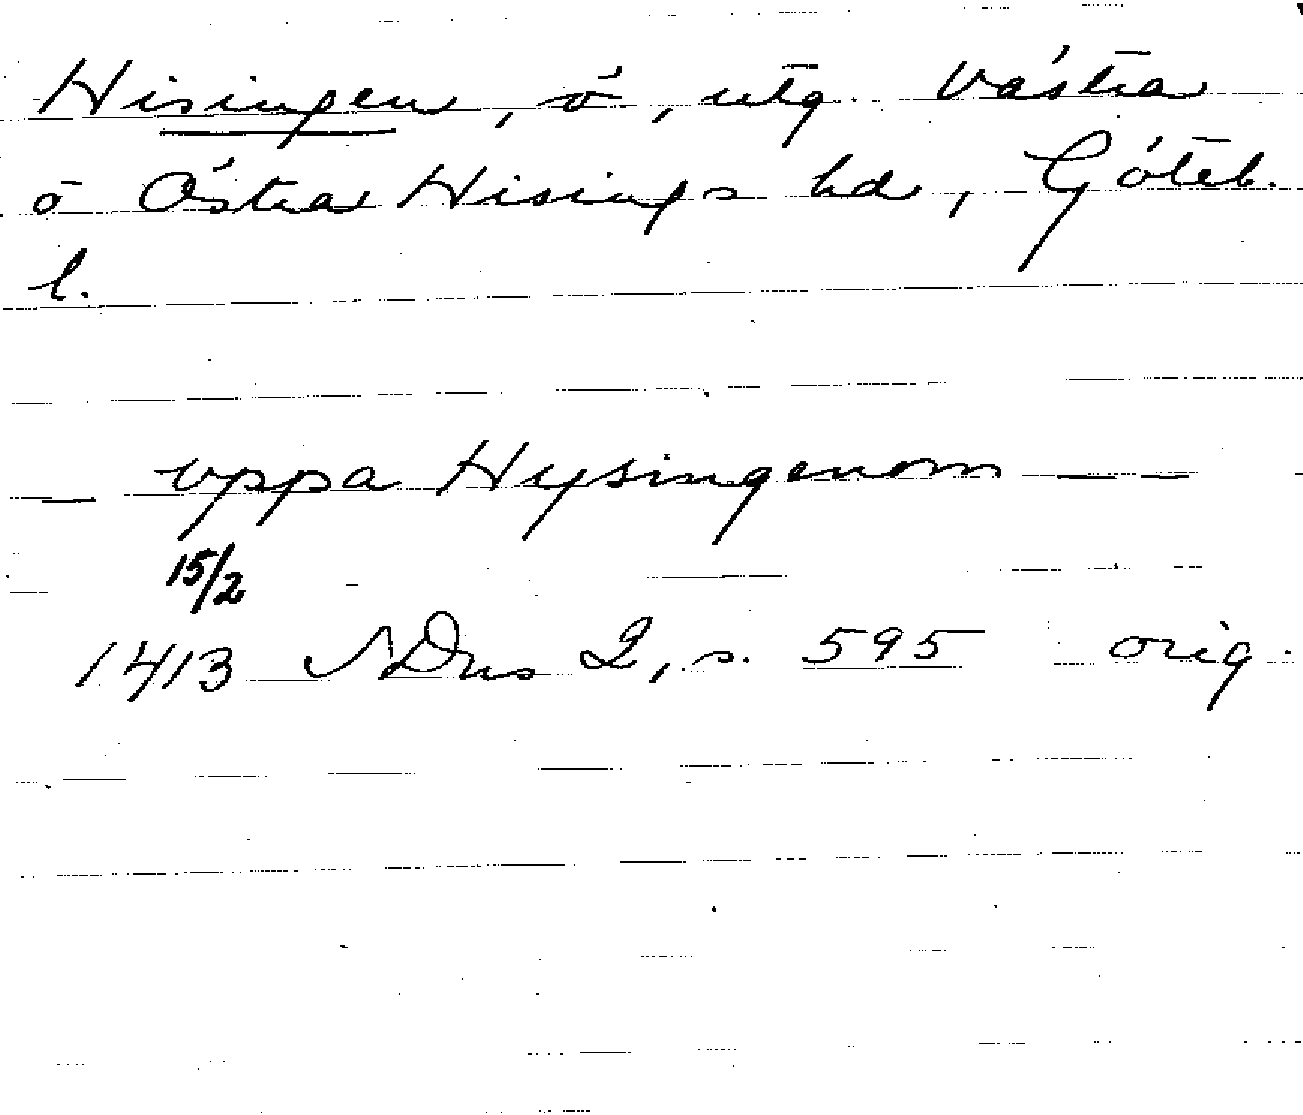 Hisingen, ö, utg. Västra
o Östra Hisings hd, Göteb.
l.
— vppa Hysingenom —
15/2
1413 NDns 2, s. 595 orig.